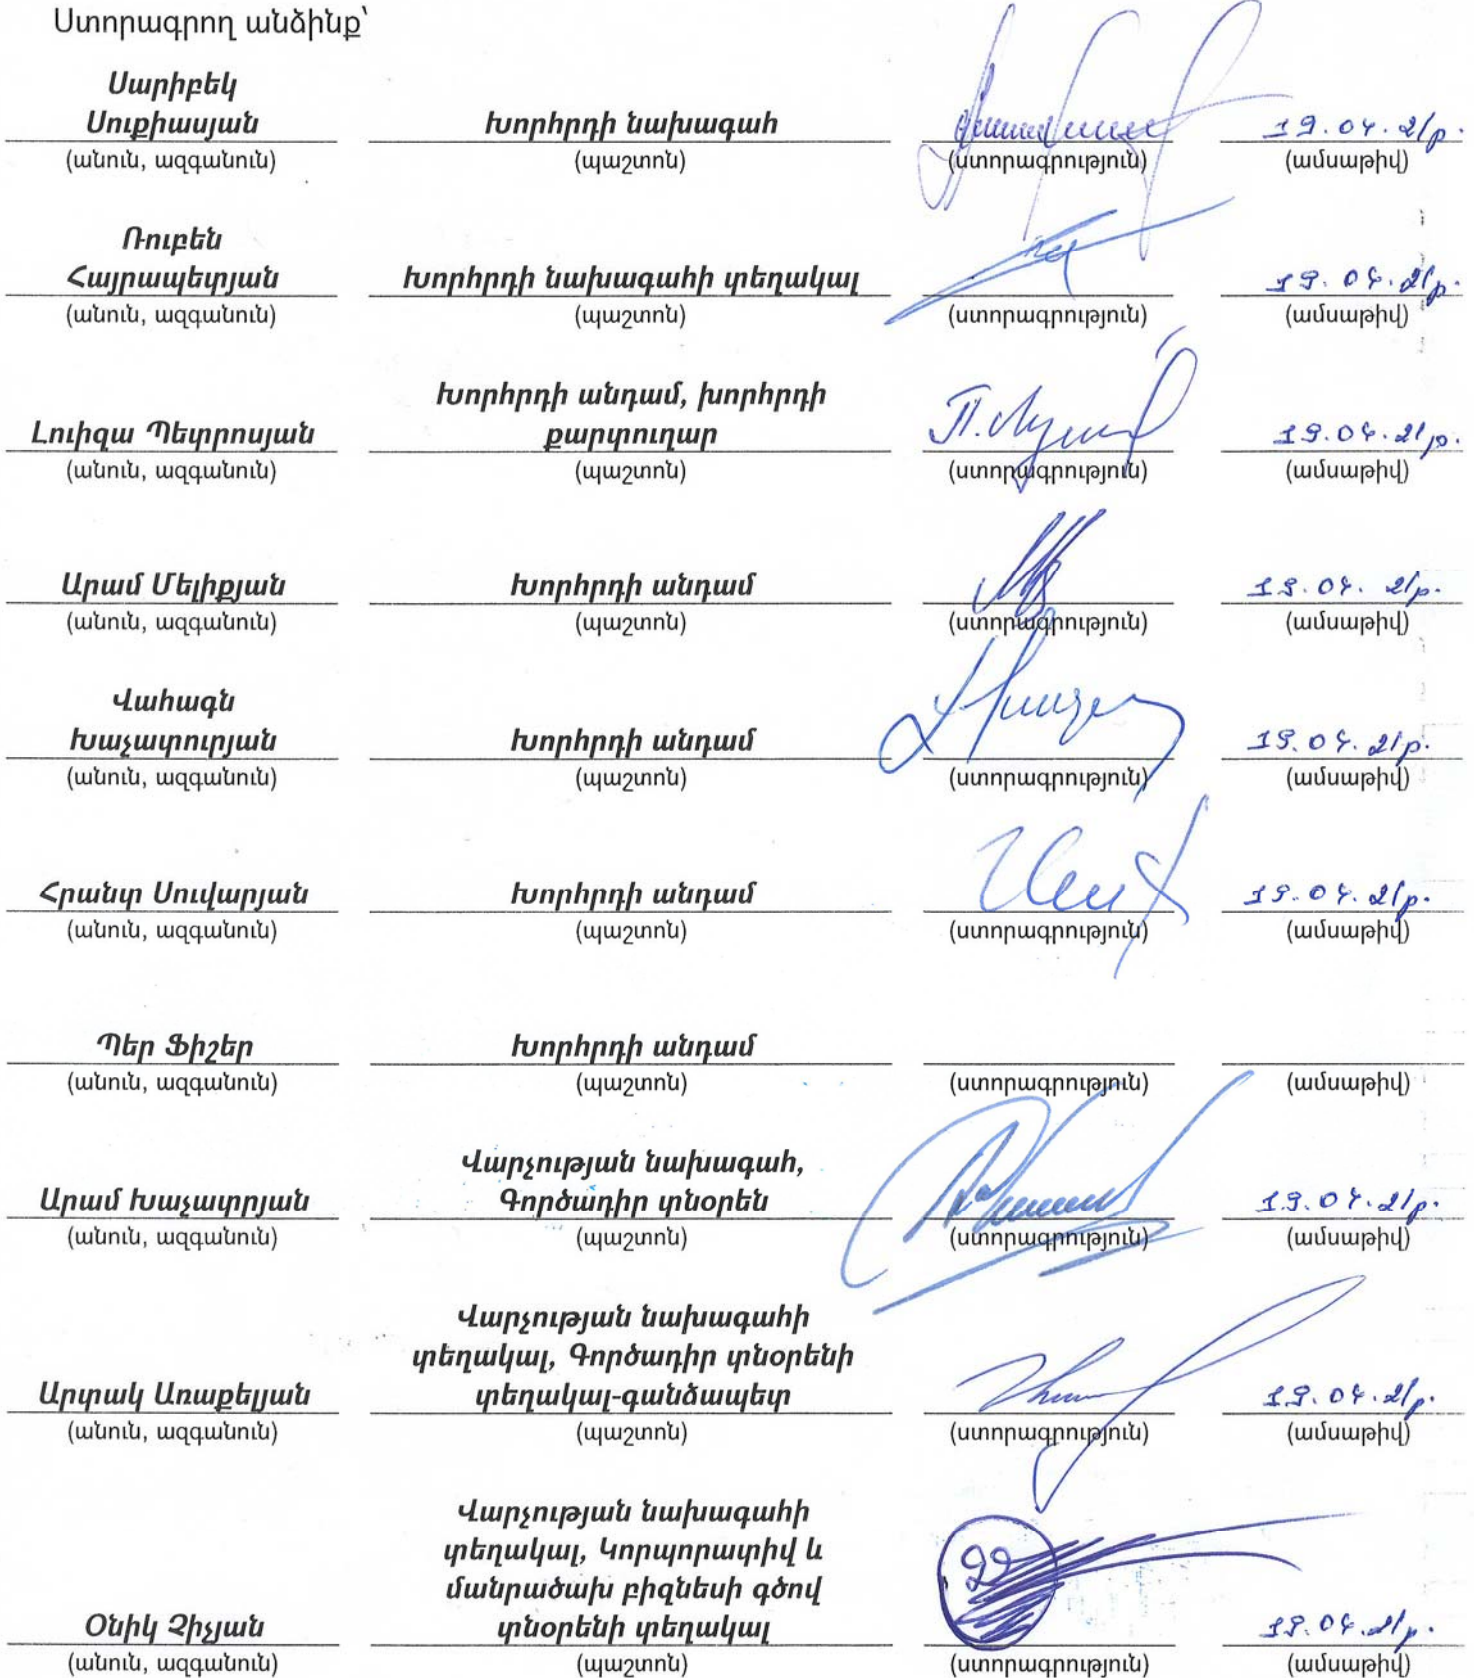 Ստորագրող անձինք՝
Սարիբեկ
Սուքիասյան Խորհրդի նախագահ 19.04.21թ.
(անուն, ազգանուն) (պաշտոն) (ստորագրություն) (ամսաթիվ)
Ռուբեն
Հայրապետյան Խորհրդի նախագահի տեղակալ 19.04.21թ.
(անուն, ազգանուն) (պաշտոն) (ստորագրություն) (ամսաթիվ)
Խորհրդի անդամ, խորհրդի
Լուիզա Պետրոսյան քարտուղար 19.04.21թ.
(անուն, ազգանուն) (պաշտոն) (ստորագրություն) (ամսաթիվ)
Արամ Մելիքյան Խորհրդի անդամ 19.04.21թ.
(անուն, ազգանուն) (պաշտոն) (ստորագրություն) (ամսաթիվ)
Վահագն
Խաչատուրյան Խորհրդի անդամ 19.04.21թ.
(անուն, ազգանուն) (պաշտոն) (ստորագրություն) (ամսաթիվ)
Հրանտ Սուվարյան Խորհրդի անդամ 19.04.21թ.
(անուն, ազգանուն) (պաշտոն) (ստորագրություն) (ամսաթիվ)
Պեր Ֆիշեր Խորհրդի անդամ
(անուն, ազգանուն) (պաշտոն) (ստորագրություն) (ամսաթիվ)
Վարչության նախագահ,
Արամ Խաչատրյան Գործադիր տնօրեն 19.04.21թ.
(անուն, ազգանուն) (պաշտոն) (ստորագրություն) (ամսաթիվ)
Վարչության նախագահի
տեղակալ, Գործադիր տնօրենի
Արտակ Առաքելյան տեղակալ-գանձապետ 19.04.21թ.
(անուն, ազգանուն) (պաշտոն) (ստորագրություն) (ամսաթիվ)
Վարչության նախագահի
տեղակալ, Կորպորատիվ և
մանրածախ բիզնեսի գծով
Օնիկ Չիչյան տնօրենի տեղակալ 19.04.21թ.
(անուն, ազգանուն) (պաշտոն) (ստորագրություն) (ամսաթիվ)